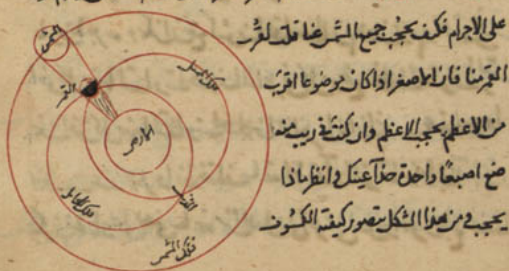 على الاجرام فكيف يحجب جميع الشمس عنا قلت لقرب
القمر منا فان الاصغر اذا كان موضوعا اقرب
من الاعظم يحجب الاعظم وان كنت في ريب منه
ضع اصبعا واحدة حذا عينك وانظر ماذا
يحجب ومن هذا الشكل يتصور كيفية الكسوف
الشمس
القمر
الارض
فلك الحامل
فلك الشمس